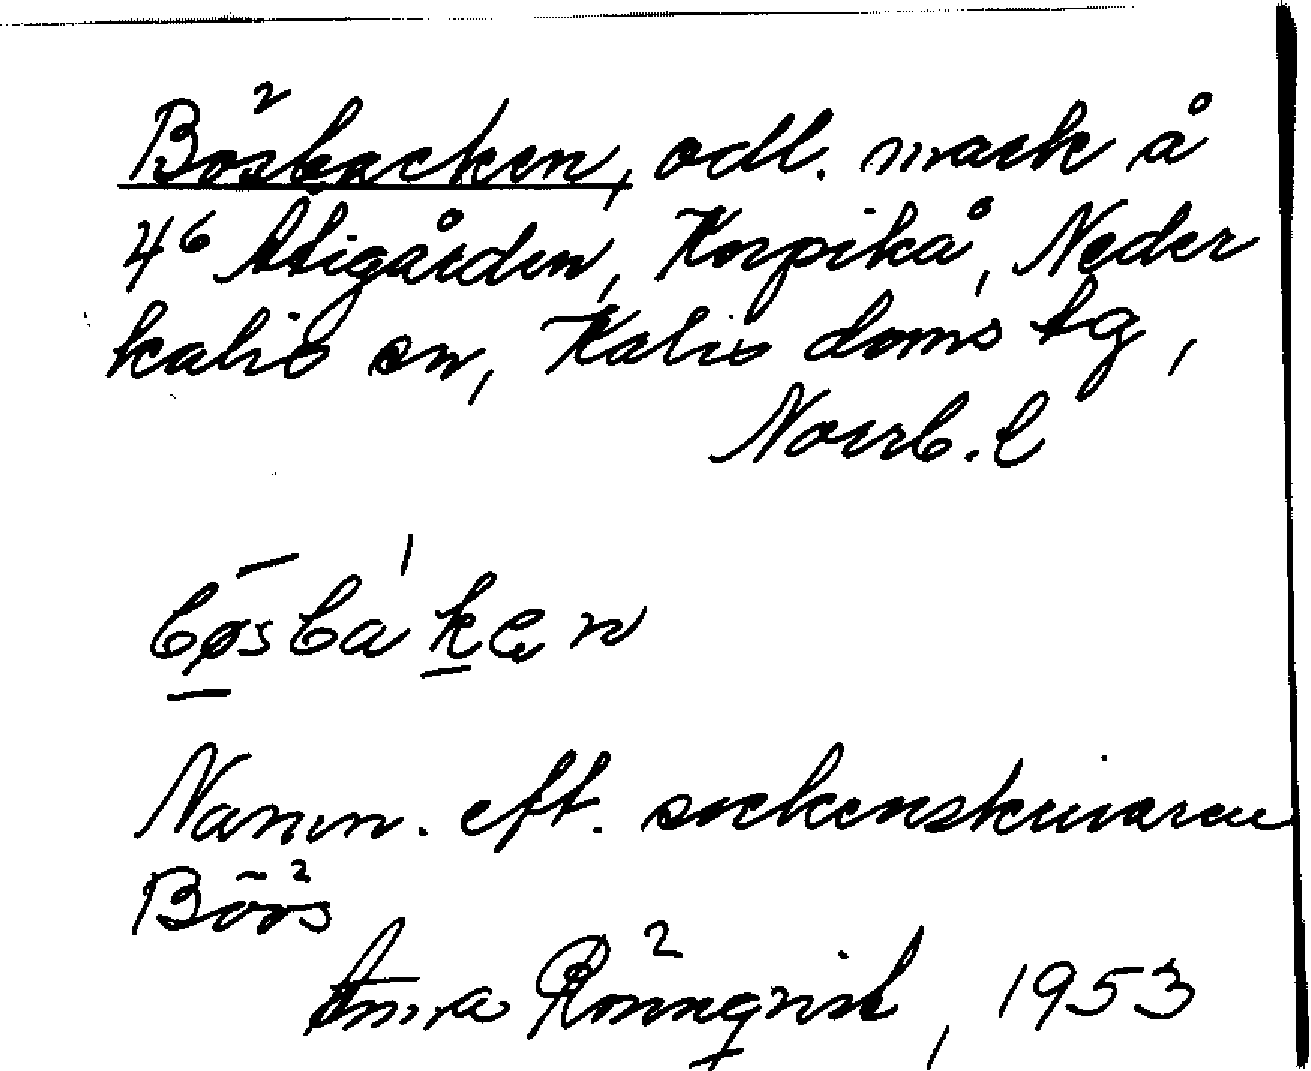 Bösbacken, odl. mark å
4⁶ Stigården, Korpikå, Neder
kalix sn, Kalix doms tg,
Norrb. l
bøsbak̠en
Namn. eft. sockenskrivaren
Böös
Anna Rönnqvist, 1953